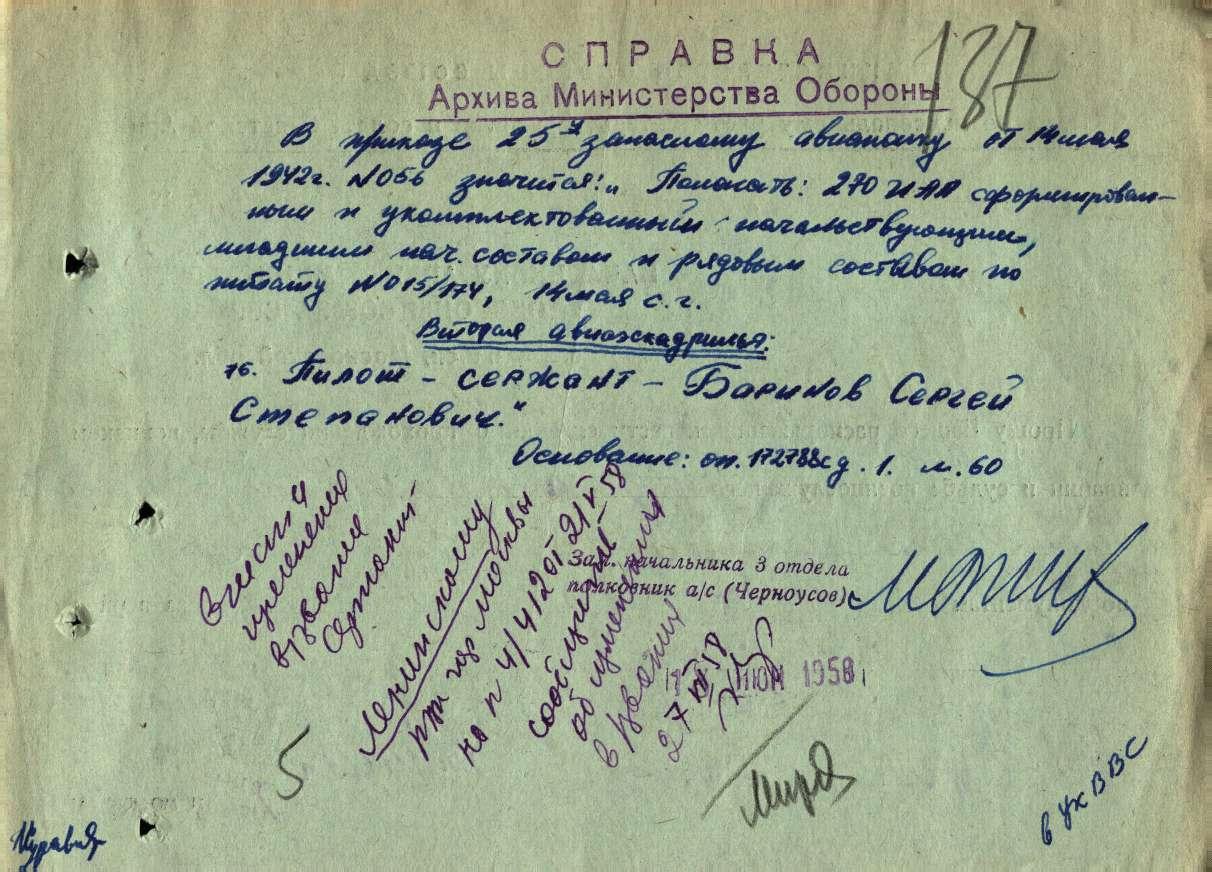 187
СПРАВКА
Архива Министерства Обороны
В приказе 25му запасному авиаполку от 14 мая
1942г. N056 значится: „Полагать: 270 ИАП сформирован-
ным и укомплектованный начальствующим,
младшим нач. составом и рядовым составом по
штату N015/174, 14 мая с.г.
Вторая авиаэскадрилья:
76. Пилот - сержант - Баринов Сергей
Степанович."
Основание: оп. 172788с д. 1. л. 60
Зам. начальника 3 отдела
полковник а/с (Черноусов)
июн 1958
Внести
изменения
в звание
Ленинскому
РВК гор Москвы
на п 4/412 от 21 VI 58
сообщить
об изменении
в звании
27 VI 58
5
в УК ВВС